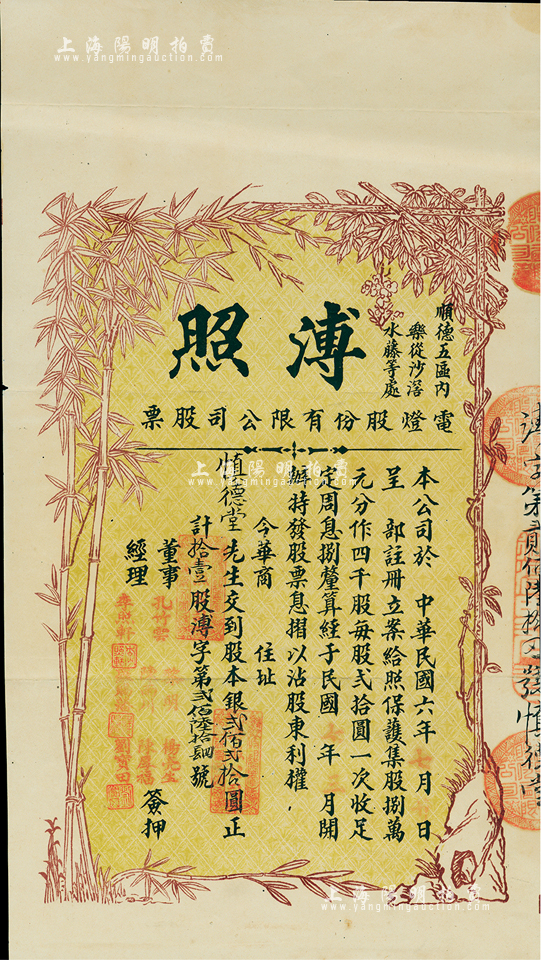 上海陽明拍賣
www.yangmingauction.com
順德五區內
樂從沙滘
水藤等處
溥照
電燈股份有限公司股票
本公司於 中華民國六年七月 日
呈 部註冊立案給照保護集股捌萬
元分作四千股每股弍拾圓一次收足
定周息捌釐算經于民國七年三月開
辦特發股票息摺以沾股東利權
今華商 住址
慎德堂先生交到股本銀弍佰弍拾圓正
計拾壹股溥字第弍佰陸拾肆號
董事
孔竹雲
楊亮生
經理
李照軒
劉寶田
簽押
上海陽明拍賣
www.yangmingauction.com
上海陽明拍賣
www.yangmingauction.com